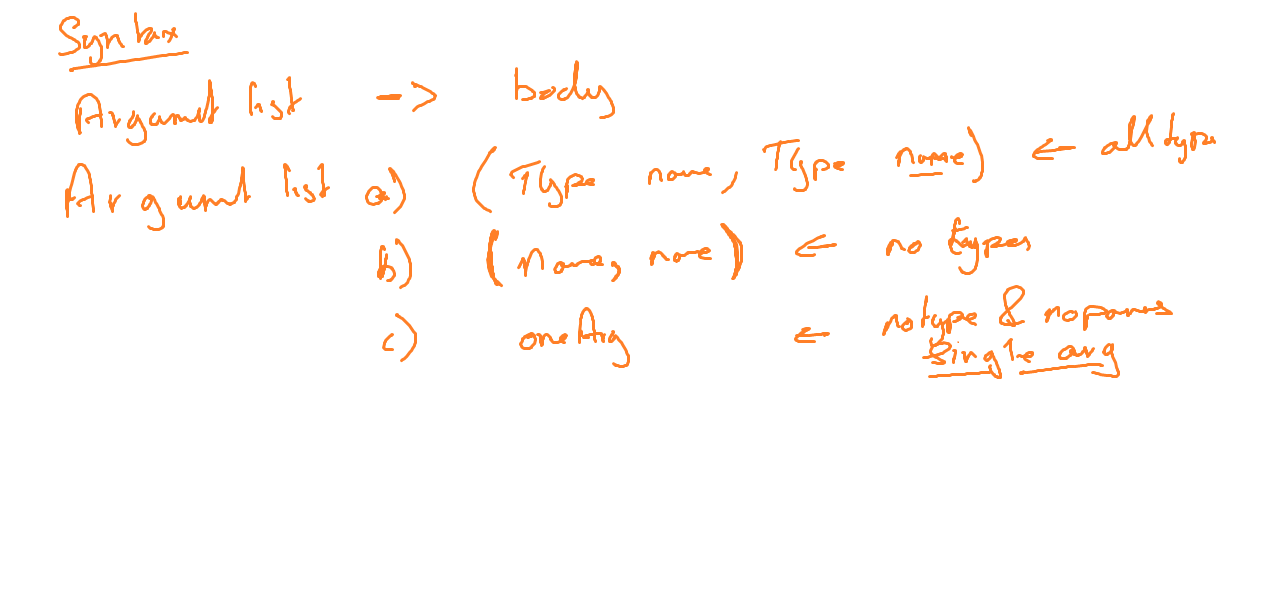 Syntax
Argument list -> body
Argument list a) (Type name, Type name) ← all type
b) (Name, name) ← no types
c) oneArg ← no type & no parens
single arg